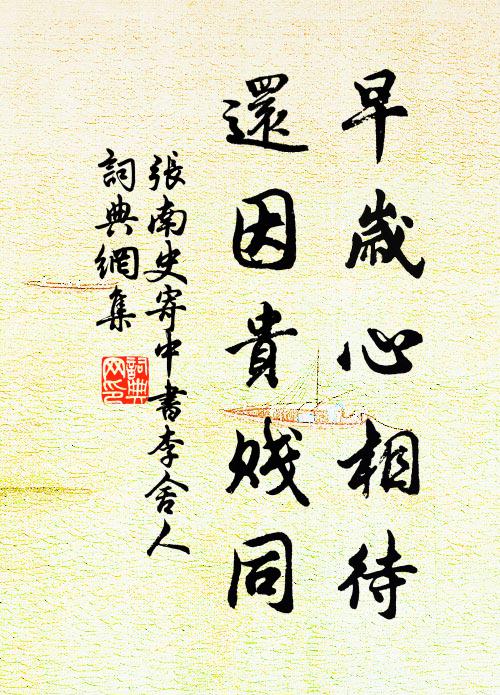 早歲心相待
還因貴賤同
張南史寄中書李舍人
詞典網集
詞典
網印